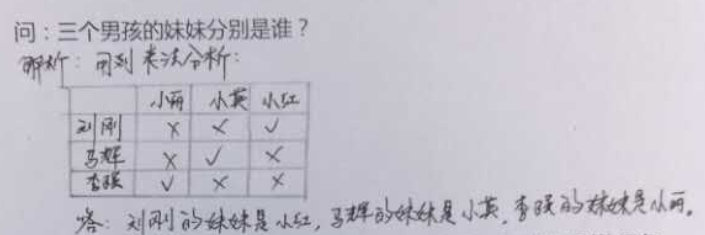 问：三个男孩的妹妹分别是谁？
解析：用列表法分析：
小丽 小英 小红
刘刚 × × ✓
马辉 × ✓ ×
李强 ✓ × ×
答：刘刚的妹妹是小红，马辉的妹妹是小英，李强的妹妹是小丽。